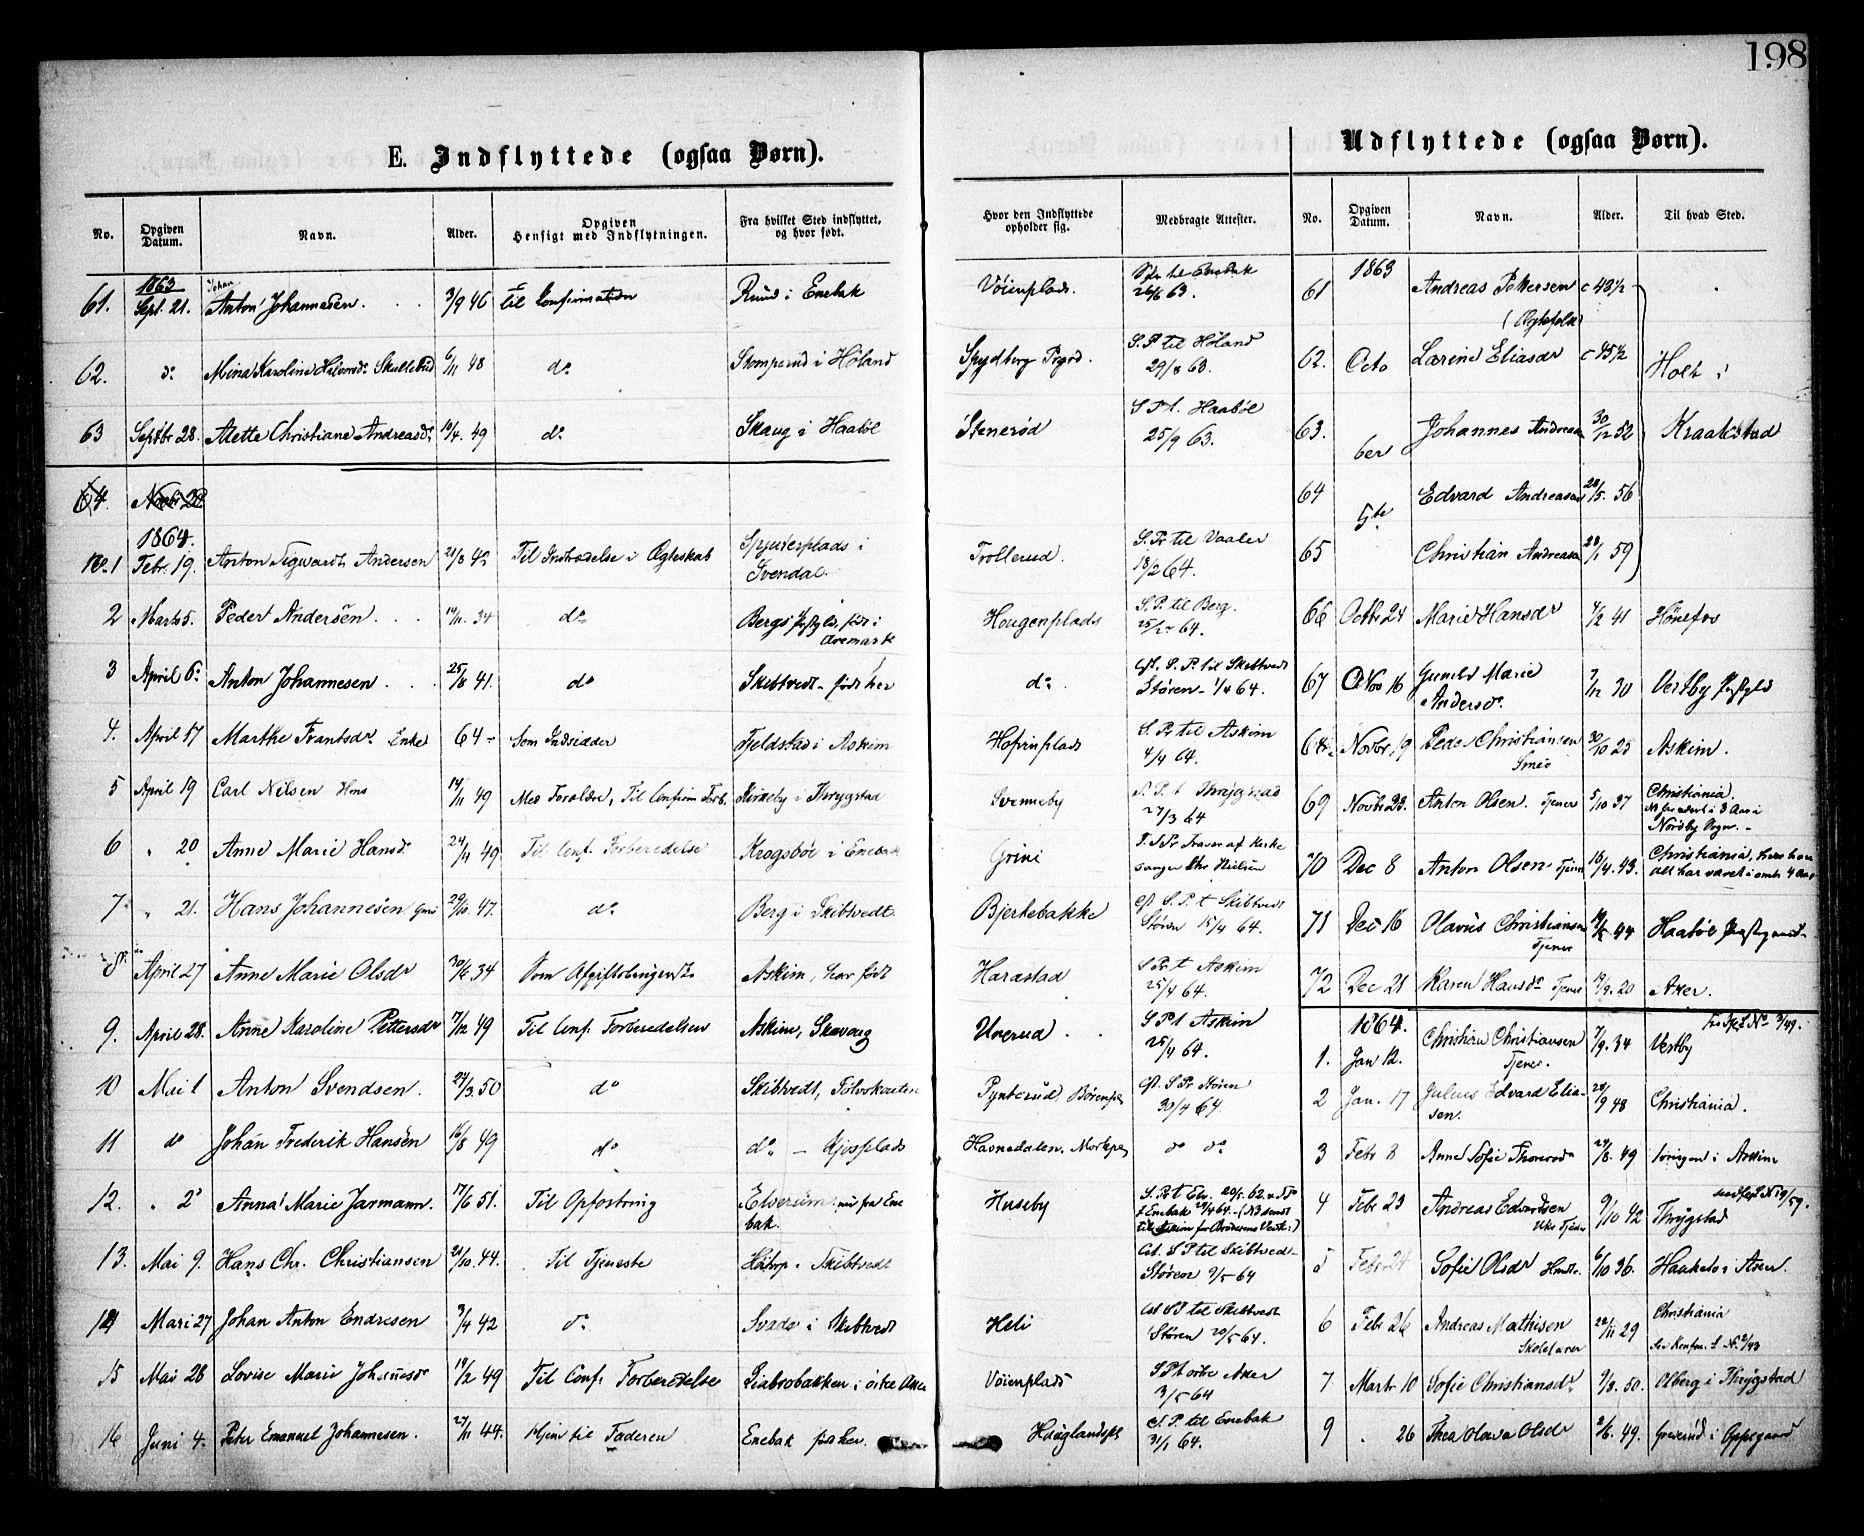 198
E. Indflyttede (ogsaa Børn).
No. Opgiven Datum. Navn. Alder. Opgiven Hensigt med Indflytningen. Fra hvilket Sted indflyttet, og hvor født. Hvor den Indflyttede opholder sig. Medbragte Attester.
1863
61. Sept. 21. Johan Anton Johannesen. 3/9 46 til Confirmation Ruud i Enebak Vøienplads. til Enebak 26/6 63.
62. do Mina Karoline Halvorsdr Skullebud 6/11 48 do Stomperud i Høland Spydberg Prgrd. S.P. til Høland 29/8 63.
63 Septbr 28. Alette Christiane Andreasdr 49 do Skaug i Haabøl Stenerød S P t. Haabøl 25/9 63.
64 Novbr 20
1864.
No. 1 Febr. 19. Anton Sigwardt Andersen 21/8 42 Til Indtrædelse i Ægteskab Spjuterplads i Svendal. Trollerud. S. Pr til Vaaler 18/2 64.
2 Marts 5. Peder Andersen 34 do Bergs Prstgld, født i Aremark Hougenplads S.P. til Berg. 64.
3 April 6. Anton Johannesen 25/8 41. do Skibtvedt - født her do. S. P. til Skibtvedt Støren - 1/4 64.
4. April 17 Marthe Frantsdr. Enke 64 - Som Indsidder Fjeldstad i Askim Hofvinplads S. Pr til Askim 4/4 64.
5 April 19 Carl Nilsen Hms 14/11 49 Med Forældre, Til Confirm Forb. Kirkeby i Thrygstad Svenneby S. P. t Thrygstad 27/3 64
6 " 20 Anne Marie Hansdr 49 Til Conf. Forberedelse Krogsbøl i Enebak Grini af Kirkesanger Chr Nielsen
7 " 21. Hans Johannesen 29/10 47. do Berg i Skibtvedt. Bjerkebakke S. P. t Skibtvedt Støren 15/4 64.
8 April 27 Anne Marie Olsdr 30/6 34 Som Askim, her født Harastad S Pr t Askim 25/4 64.
9. April 28. Anne Karoline Pettersdr 17/12 49 Til Conf. Forberedelsen Askim, Skavoug Unerud S P t Askim 25/4 64.
10 Mai 1 Anton Svendsen. 24/3 50 do Skibtvedt, Pynterud, S Pr Støren 30/4 64
11 do Johan Frederik Hansen 16/8 49 do do - Kjosplads Hasnedalen, do do
12. " 2 Anna Marie Jarmann. 17/6 51. Til Opfostring Elverum nu fra Enebak. Huseby S. Pr t Elv. 20/5 62.
13. Mai 9. Hans Chr. Christiansen 28/10 44. Til Tjeneste Skibtvedt S P til Skibtvedt - Støren 9/5 64
14 Mai 27 Johan Anton Endresen 3/4 42 do i Skibtvedt Heli S P til Skibtvedt Støren 20/5 64.
15 Mai 28 Lovise Marie Johansdr 19/2 49 Til Conf. Forberedelse Liabrobakken i østre Aker Vøienplads S P t østre Aker 3/5 64
16 Juni 4. Peter Emanuel Johannesen. 27/11 44. Hjem til Faderen Enebak født her. S. P. til Enebak 31/1 64.
Udflyttede (ogsaa Børn).
No. Opgiven Datum. Navn. Alder. Til hvad Sted.
1863
61 Andreas Pettersen c 43 1/2
(Ægtefolk)
62. Octo Larine Eliasdr c 45 1/2 Holt i
63. ber Johannes Andreasen 30/12 52 Kraakstad
64 5te Edvard Andreasen 28/5 56
65 Christian Andreasen 28/1 59
66 Octbr 24 Marie Hansdr 4/2 41 Hønefos
67 Nov 16 Marie Andersdr. 7/12 30 Vestby Prstgld
68. Novbr 19 Peder Christiansen 30/10 25 Askim.
69 Novbr 23. Anton Olsen. Tjener 5/10 37 Christiania.
70 Dec 8 Anton Olsen Tjener 43. Christiania,
71 Dec 16 Olavus Christiansen Tjener 44 Haabøl Præstegjeld
72 Dec 21 Karen Hansdr Tjener 20 Aker.
1864.
1. Jan 12. Christian Christiansen Tjener. 7/9 34 Vestby
2 Jan. 17 Julius Edvard Eliasen. 28/9 48 Christiania.
3 Febr 8 Anne Sofie Thoresdr 49 i Askim
4 Febr 23 Andreas Edvardsen 9/10 42 Thrygstad
5 Febr 24 Sofie Olsdr 6/10 36. i Aker.
6 Febr 26 Andreas Mathisen Skolelærer 22/11 29 Christiania
7 Marts 10 Sofie Christiansdr 9/8 50. Olberg i Thrygstad
9 . 26 Thea Olava Olsdr 2/6 49. Greverud i Oppegaard